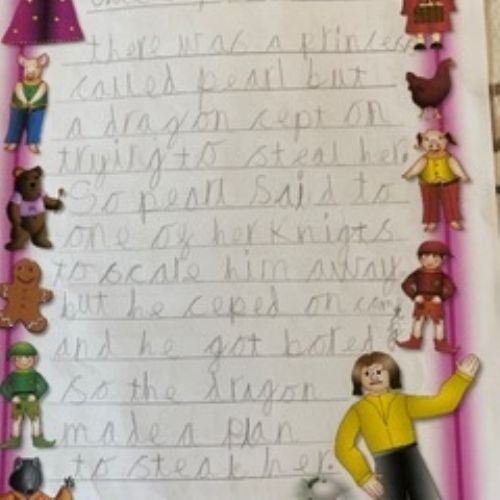 there was a princess
called pearl but
a dragon cept on
trying to steal her.
So pearl said to
one of her Knigts
to scale him away
but he ceped on
and he got bored
so the dragon
made a plan
to steal her.